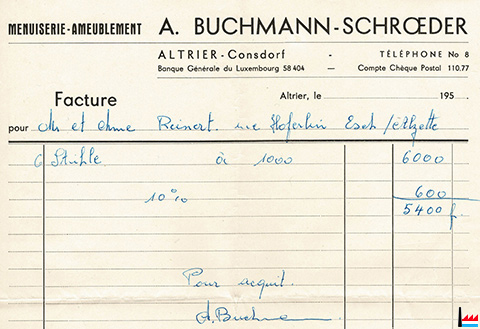 MENUISERIE-AMEUBLEMENT A. BUCHMANN-SCHRŒDER
ALTRIER-Consdorf - TÉLÉPHONE No 8
Banque Générale du Luxembourg 58 404 — Compte Chèque Postal 110.77
Facture Altrier, le 195
pour Mr et Mme Reinert rue Hoferlin Esch/Alzette
6 Stühle à 1000 6000
10% 600
5400 f.
Pour acquit.
A. Buchma